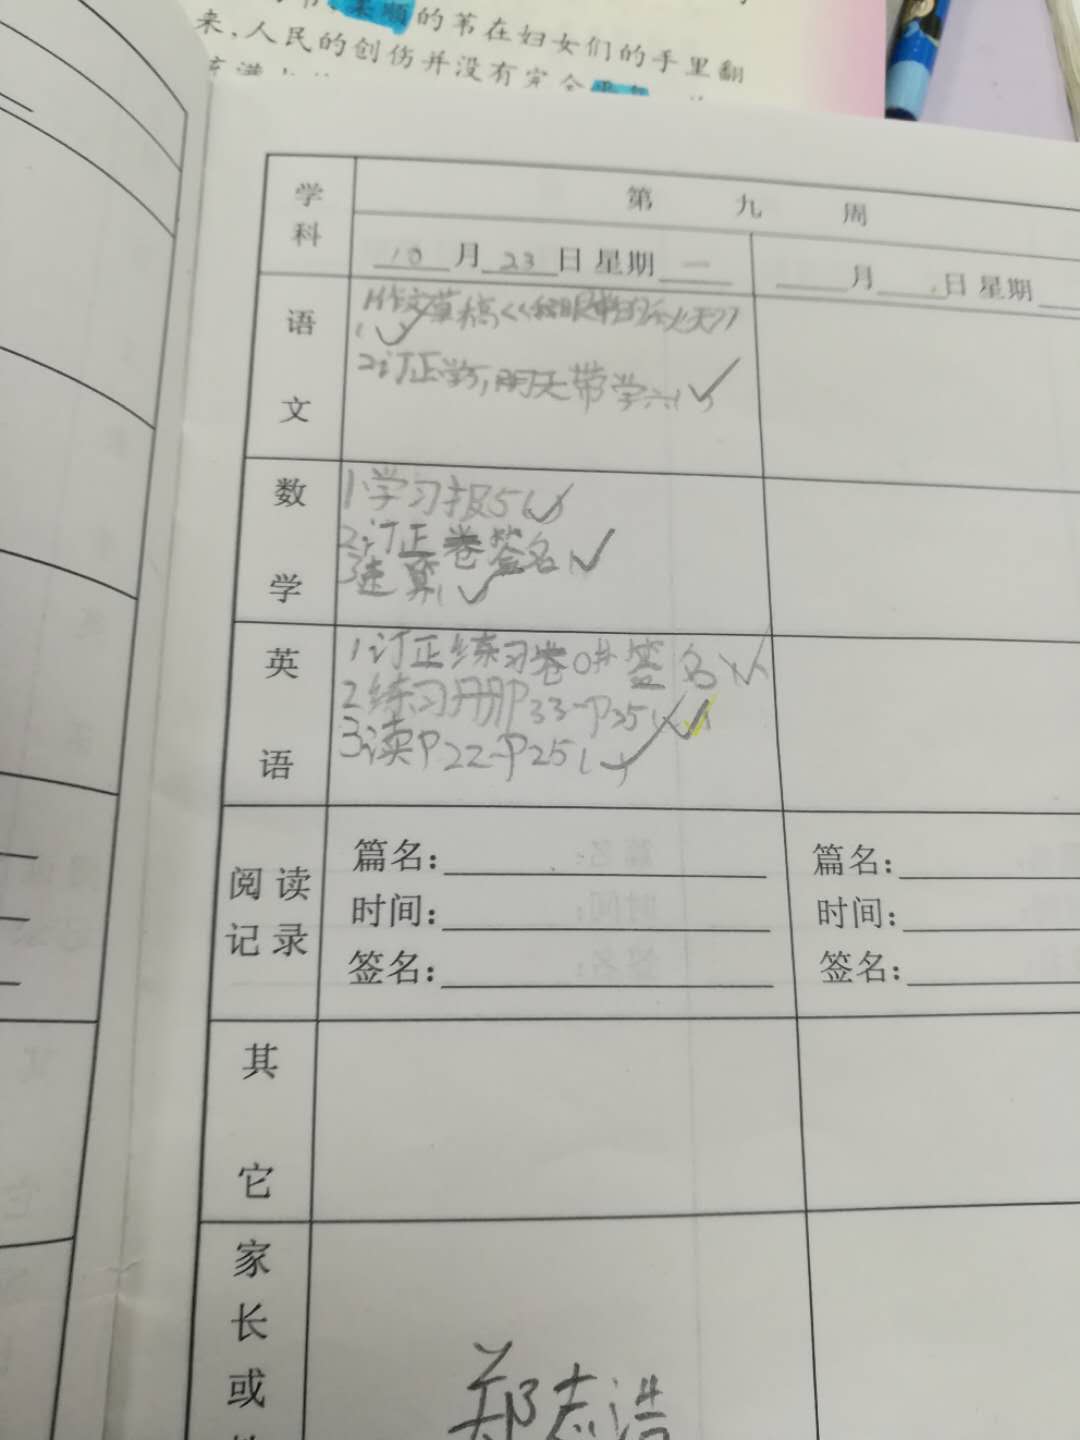 柔顺的苇在妇女们的手里翻
来，人民的创伤并没有完全
学科
第九周
10月23日星期一
月 日星期
语文
1.作文草稿
2.订正学5，明天带学六( )
数学
1.学习报5( )
2.订正卷签名( )
3.速算( )
英语
1.订正练习卷 签名
2.练习册P33-P35( )
3.读P22-P25( )
阅读记录
篇名：
时间：
签名：
篇名：
时间：
签名：
其它
家长或
郑志浩